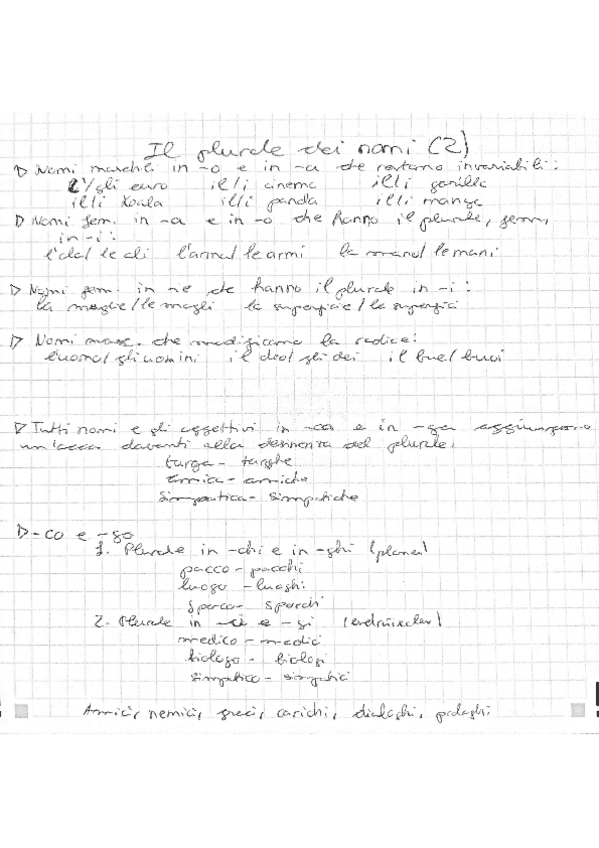 Il plurale dei nomi (2)
▷ Nomi maschili in -o e in -a che restano invariabili:
l'/gli euro il/i cinema il/i gorilla
il/i koala il/i panda il/i manga
▷ Nomi fem. in -a e in -o che hanno il plurale, femm,
in -i:
l'ala/le ali l'arma/le armi la mano/le mani
▷ Nomi fem. in -ie che hanno il plurale in -i:
la moglie/le mogli la superficie/la superfici
▷ Nomi masc. che modificano la radice:
l'uomo/gli uomini il dio/gli dei il bue/buoi
▷ Tutti nomi e gli aggettivi in -ca e in -ga aggiungono
un'acca davanti alla desinenza del plurale:
targa - targhe
amica - amiche
simpatica - simpatiche
▷ -co e -go
1. Plurale in -chi e in -ghi (piane)
pacco - pacchi
luogo - luoghi
sporco - sporchi
2. Plurale in -ci e -gi
medico - medici
biologo - biologi
simpatico - simpatici
Amici, nemici, greci, carichi, dialoghi,